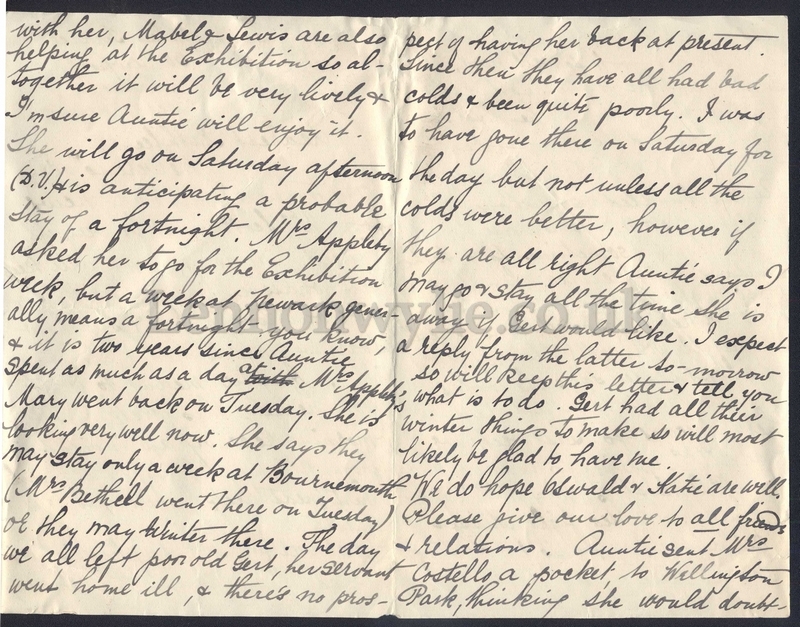 with her, Mabel & Lewis are also
helping at the Exhibition so al-
together it will be very lively &
I'm sure Auntie will enjoy it.
She will go on Saturday afternoon
(D.V.) & is anticipating a probable
stay of a fortnight. Mrs Appleby
asked her to go for the Exhibition
week, but a week at Newark gener-
ally means a fortnight you know,
& it is two years since Auntie
spent as much as a day at with Mrs Appleby's
Mary went back on Tuesday. She is
looking very well now. She says they
may stay only a week at Bournemouth
(Mrs Bethell went there on Tuesday)
or they may winter there. The day
we all left poor old Gert, her servant
went home ill, & there's no pros-
pect of having her back at present.
Since then they have all had bad
colds & been quite poorly. I was
to have gone there on Saturday for
the day but not unless all the
colds were better, however if
they are all right Auntie says I
may go & stay all the time she is
away if Gert would like. I expect
a reply from the latter to-morrow
so will keep this letter & tell you
what is to do. Gert had all their
winter things to make so will most
likely be glad to have me.
We do hope Oswald & Katie are well.
Please give our love to all friends
& relations. Auntie sent Mrs
Costello a pocket, to Wellington
Park, thinking she would doubt-
lennonwylie.co.uk